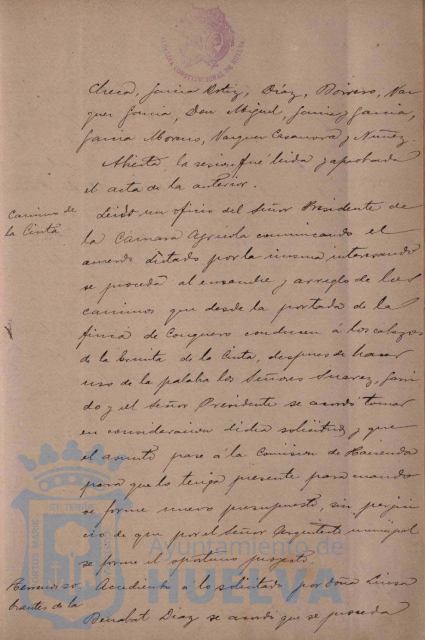 ALCALDIA CONSTITUCIONAL DE HUELVA
Checa, Garcia Ortiz, Diaz, Borrero, Vaz
quez Garcia, Don Miguel, Garcia y Garcia,
Garcia Moreno, Vazquez Casanova y Nuñez.
Abierta la sesion fué leida y aprobada
el acta de la anterior.
Caminos de
la Cinta
Leido un oficio del Señor Presidente de
la Cámara Agricola comunicando el
acuerdo dictado por la misma interesando
se proceda al ensanche y arreglo de los
caminos que desde la portada de la
finca de Conquero conducen á los cabezos
de la Ermita de la Cinta, despues de hacer
uso de la palabra los Señores Suarez, Garri
do y el Señor Presidente se acordó tomar
en consideracion dicha solicitud y que
el asunto pase á la Comision de Hacienda
para que lo tenga presente para cuando
se forme nuevo presupuesto, sin perjui
cio de que por el Señor Arquitecto municipal
se forme el oportuno proyecto.
Accediendo a lo solicitado por doña Luisa
brantes de la
Benabat Diaz se acordó que se proceda
Ayuntamiento de
HUELVA